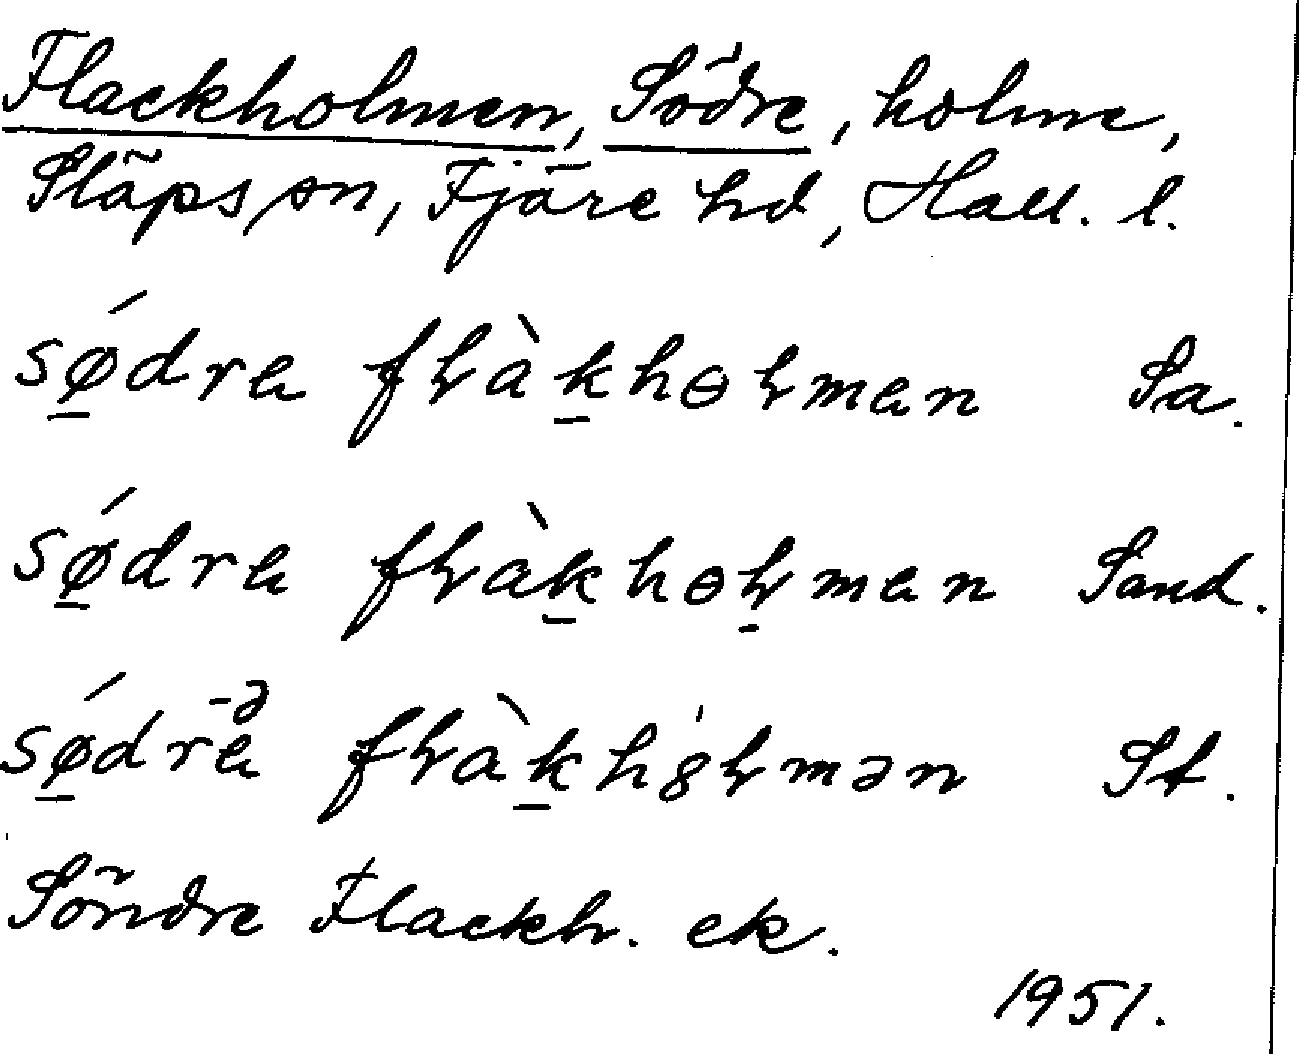 Flackholmen, Södre, holme,
Släps sn, Fjäre hd, Hall. l.
sǿ̠dra fɫàk̠hɵɫman Sa.
sǿ̠dra fɫàk̠hɵɫ̠man Sand.
sǿ̠dra -ə fɫàk̠h8̍ɫmən St.
Söndre Flackh. ek.
1951.